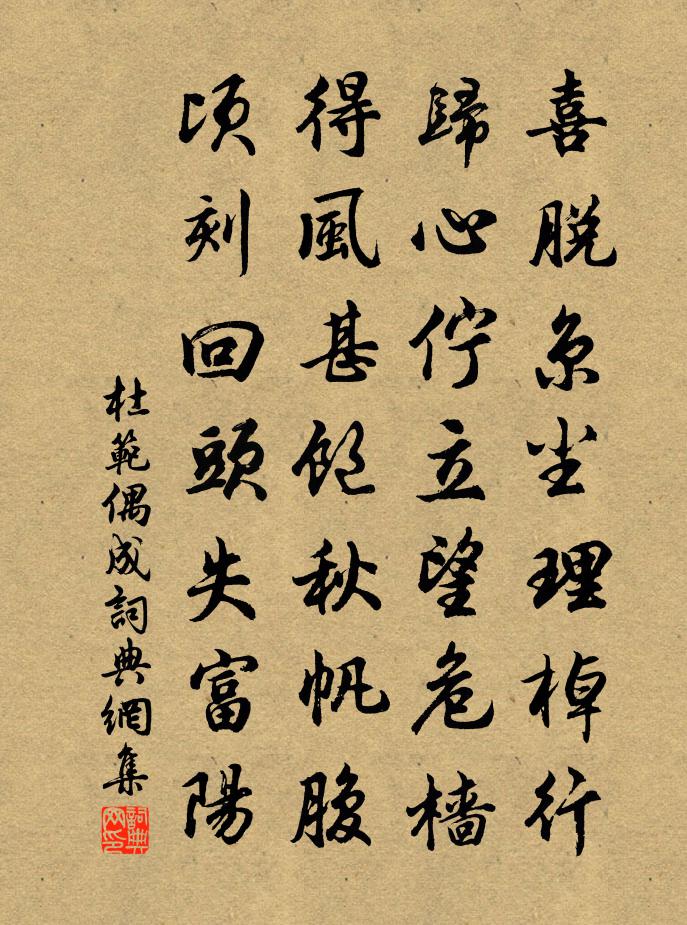 喜脫京尘理棹行
歸心佇立望危檣
得風甚飽秋帆腹
頃刻回頭失富陽
杜範偶成詞典網集
詞典网印